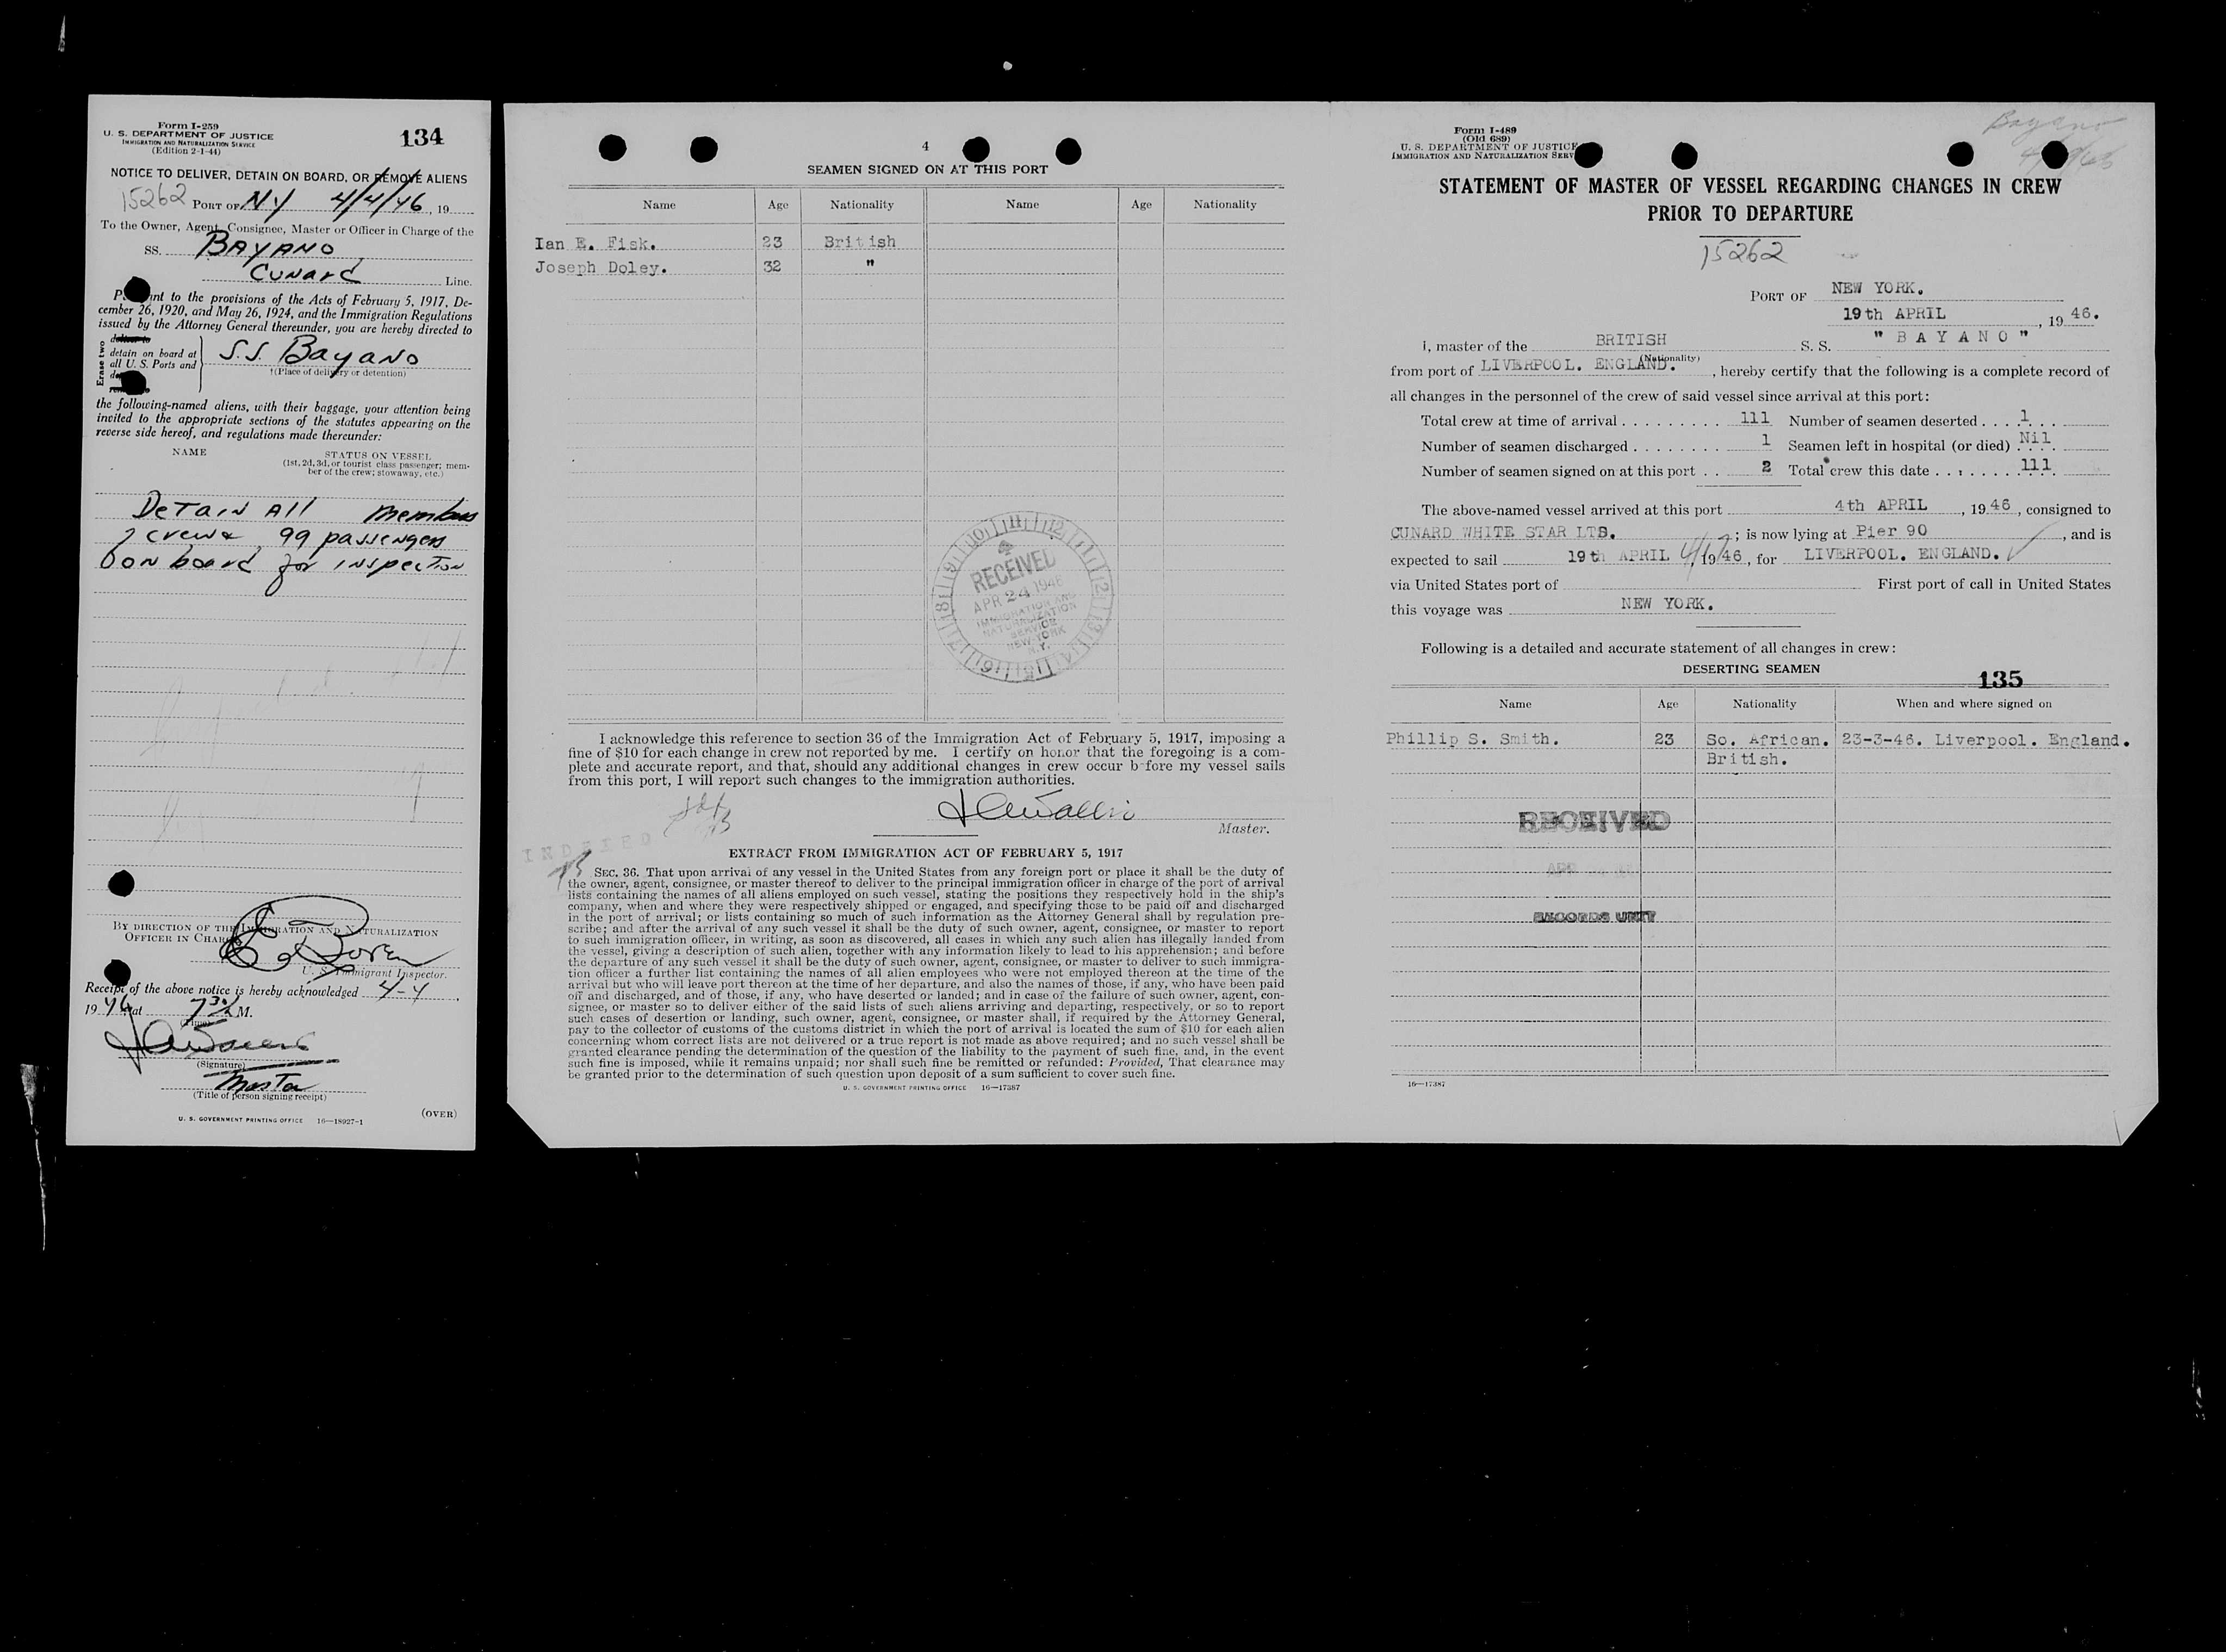 Form I-259
U. S. DEPARTMENT OF JUSTICE
IMMIGRATION AND NATURALIZATION SERVICE
(Edition 2-1-44)
134
NOTICE TO DELIVER, DETAIN ON BOARD, OR REMOVE ALIENS
15262 PORT OF N.Y 4/4/46, 19
To the Owner, Agent, Consignee, Master or Officer in Charge of the
SS. BAYANO
Cunard Line.
nt to the provisions of the Acts of February 5, 1917, De-
cember 26, 1920, and May 26, 1924, and the Immigration Regulations
issued by the Attorney General thereunder, you are hereby directed to
Erase two
detain on board at
all U. S. Ports and
S.S. Bayano
†(Place of delivery or detention)
the following-named aliens, with their baggage, your attention being
invited to the appropriate sections of the statutes appearing on the
reverse side hereof, and regulations made thereunder:
NAME
STATUS ON VESSEL
(1st, 2d, 3d, or tourist class passenger; mem-
ber of the crew; stowaway, etc.)
Detain All members
crew & 99 passengers
on board for inspection
BY DIRECTION OF THE IMMIGRATION AND NATURALIZATION
OFFICER IN CHARGE
U. S. Immigrant Inspector.
Receipt of the above notice is hereby acknowledged 4-4
1946 at 730 M.
(Time)
(Signature)
Master
(Title of person signing receipt)
U. S. GOVERNMENT PRINTING OFFICE 16—18927-1
(OVER)
4
SEAMEN SIGNED ON AT THIS PORT
Name Age Nationality Name Age Nationality
Ian E. Fisk. 23 British
Joseph Doley. 32 "
RECEIVED
APR 24 1946
IMMIGRATION AND
NATURALIZATION
SERVICE
NEW YORK
N.Y.
I acknowledge this reference to section 36 of the Immigration Act of February 5, 1917, imposing a
fine of $10 for each change in crew not reported by me. I certify on honor that the foregoing is a com-
plete and accurate report, and that, should any additional changes in crew occur before my vessel sails
from this port, I will report such changes to the immigration authorities.
Master.
INDEXED
EXTRACT FROM IMMIGRATION ACT OF FEBRUARY 5, 1917
SEC. 36. That upon arrival of any vessel in the United States from any foreign port or place it shall be the duty of
the owner, agent, consignee, or master thereof to deliver to the principal immigration officer in charge of the port of arrival
lists containing the names of all aliens employed on such vessel, stating the positions they respectively hold in the ship's
company, when and where they were respectively shipped or engaged, and specifying those to be paid off and discharged
in the port of arrival; or lists containing so much of such information as the Attorney General shall by regulation pre-
scribe; and after the arrival of any such vessel it shall be the duty of such owner, agent, consignee, or master to report
to such immigration officer, in writing, as soon as discovered, all cases in which any such alien has illegally landed from
the vessel, giving a description of such alien, together with any information likely to lead to his apprehension; and before
the departure of any such vessel it shall be the duty of such owner, agent, consignee, or master to deliver to such immigra-
tion officer a further list containing the names of all alien employees who were not employed thereon at the time of the
arrival but who will leave port thereon at the time of her departure, and also the names of those, if any, who have been paid
off and discharged, and of those, if any, who have deserted or landed; and in case of the failure of such owner, agent, con-
signee, or master so to deliver either of the said lists of such aliens arriving and departing, respectively, or so to report
such cases of desertion or landing, such owner, agent, consignee, or master shall, if required by the Attorney General,
pay to the collector of customs of the customs district in which the port of arrival is located the sum of $10 for each alien
concerning whom correct lists are not delivered or a true report is not made as above required; and no such vessel shall be
granted clearance pending the determination of the question of the liability to the payment of such fine, and, in the event
such fine is imposed, while it remains unpaid; nor shall such fine be remitted or refunded: Provided, That clearance may
be granted prior to the determination of such question upon deposit of a sum sufficient to cover such fine.
U. S. GOVERNMENT PRINTING OFFICE 16—17387
Form I-489
(Old 689)
U. S. DEPARTMENT OF JUSTICE
IMMIGRATION AND NATURALIZATION SERV
Bayano
STATEMENT OF MASTER OF VESSEL REGARDING CHANGES IN CREW
PRIOR TO DEPARTURE
15262
PORT OF NEW YORK.
19th APRIL, 1946.
I, master of the BRITISH S. S. " B A Y A N O "
(Nationality)
from port of LIVERPOOL. ENGLAND., hereby certify that the following is a complete record of
all changes in the personnel of the crew of said vessel since arrival at this port:
Total crew at time of arrival 111 Number of seamen deserted 1
Number of seamen discharged 1 Seamen left in hospital (or died) Nil
Number of seamen signed on at this port 2 Total crew this date 111
The above-named vessel arrived at this port 4th APRIL, 1946, consigned to
CUNARD WHITE STAR LTS.; is now lying at Pier 90, and is
expected to sail 19th APRIL, 1946, for LIVERPOOL. ENGLAND.
via United States port of First port of call in United States
this voyage was NEW YORK.
Following is a detailed and accurate statement of all changes in crew:
DESERTING SEAMEN
135
Name Age Nationality When and where signed on
Phillip S. Smith. 23 So. African. 23-3-46. Liverpool. England.
British.
RECEIVED
APR
RECORDS UNIT
16—17387